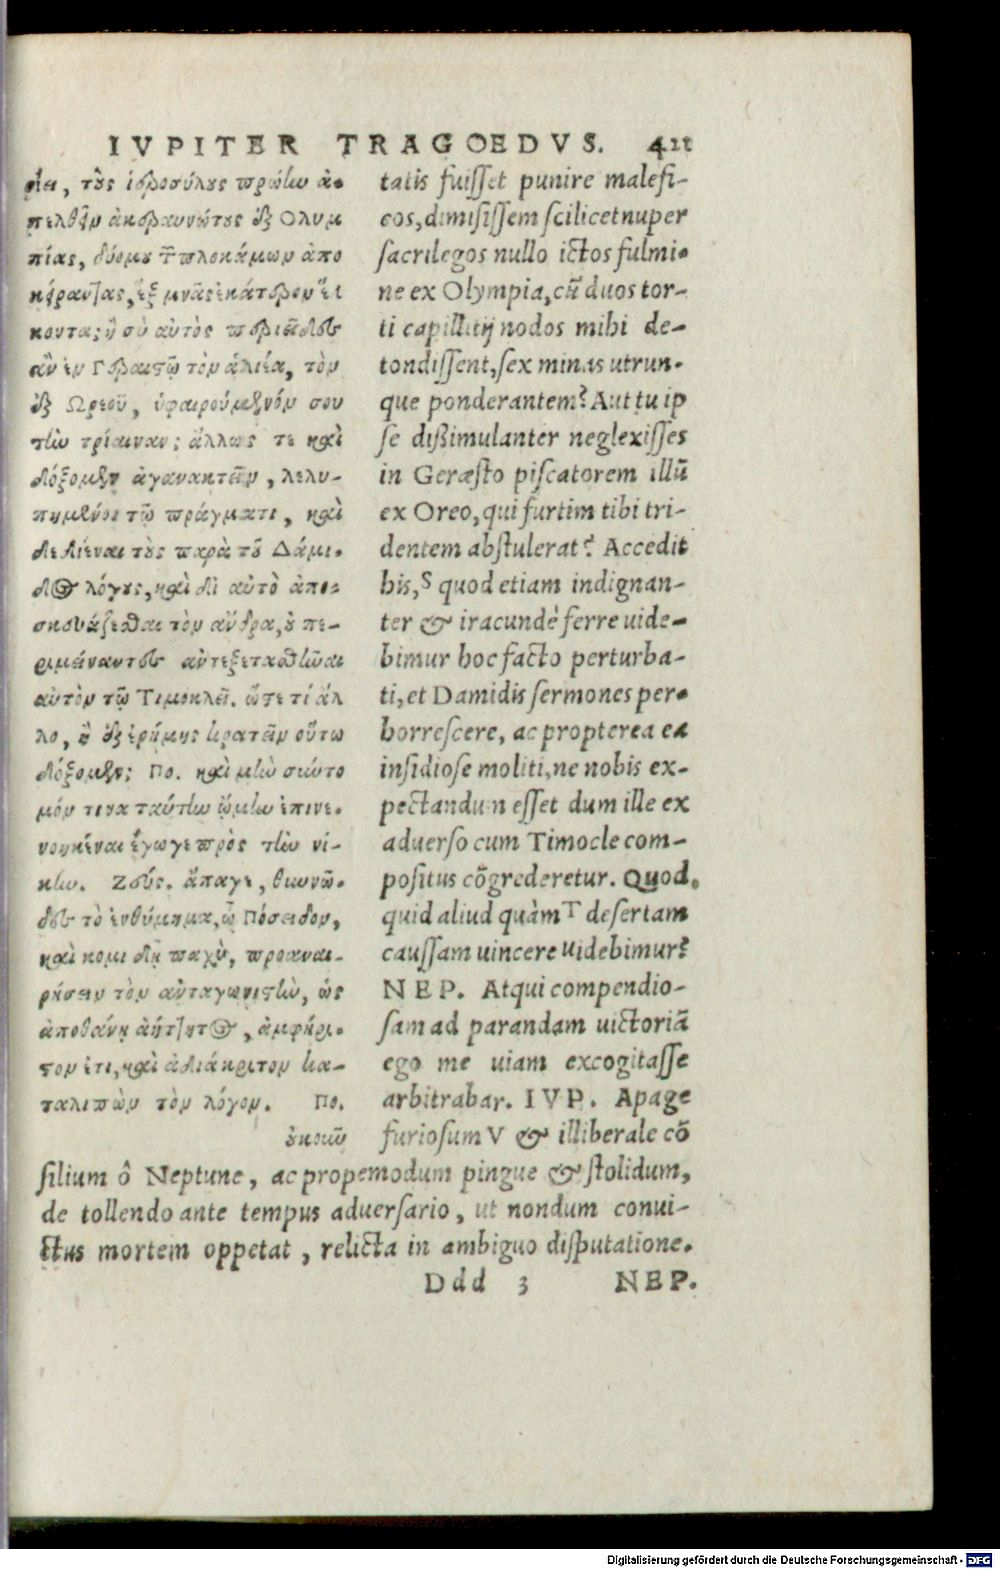 IVPITER TRAGOEDVS. 421
τοὺς ἱεροσύλους πρώην ἀ-
πελθεῖν ἀκεραυνώτους ἐξ Ολυμ
πίας, δύο μου τῶν πλοκάμων ἀπο
κείραντας, ἓξ μνᾶς ἑκάτερον ἕλ
κοντας; ἢ σὺ αὐτὸς περιεῖδες
ἂν ἐν Γεραιστῷ τὸν ἁλιέα, τὸν
ἐξ Ωρεοῦ, ὑφαιρούμενόν σου
τὴν τρίαιναν; ἄλλως τε καὶ
δόξομεν ἀγανακτεῖν, λελυ-
πημένοι τῷ πράγματι, καὶ
δεδιέναι τοὺς παρὰ τοῦ Δάμι-
δος λόγους, καὶ δι αὐτὸ ἀπο-
σκευάζεσθαι τὸν ἄνδρα, οὐ πε-
ριμείναντες ἀντεξετασθῆναι
αὐτὸν τῷ Τιμοκλεῖ. ὥστε τί ἄλ
λο, ἢ ἐξ ἐρήμης κρατεῖν οὕτω
δόξομεν; Πο. καὶ μὴν σύντο
μόν τινα ταύτην ᾤμην ἐπινε-
νοηκέναι ἔγωγε πρὸς τὴν νί-
κην. Ζεύς. ἄπαγε, θυννῶ-
δες τὸ ἐνθύμημα, ὦ Πόσειδον,
καὶ κομιδῆ παχὺ, προαναι-
ρήσειν τὸν ἀνταγωνιστὴν, ὡς
ἀποθάνῃ ἀήττητος, ἀμφήρι-
στον ἔτι, καὶ ἀδιάκριτον κα-
ταλιπὼν τὸν λόγον. Πο.
οὐκοῦν
tatis fuisset punire malefi-
cos, dimisissem scilicet nuper
sacrilegos nullo ictos fulmi-
ne ex Olympia, cũ duos tor-
ti capillitij nodos mihi de-
tondissent, sex minas utrun-
que ponderantem? Aut tu ip
se dißimulanter neglexisses
in Geræsto piscatorem illũ
ex Oreo, qui furtim tibi tri-
dentem abstulerat? Accedit
his, S quod etiam indignan-
ter & iracundè ferre uide-
bimur hoc facto perturba-
ti, et Damidis sermones per-
horrescere, ac propterea ea
insidiose moliti, ne nobis ex-
pectandum esset dum ille ex
aduerso cum Timocle com-
positus cõgrederetur. Quod,
quid aliud quàm T desertam
caussam uincere uidebimur?
NEP. Atqui compendio-
sam ad parandam uictoriã
ego me uiam excogitasse
arbitrabar. IVP. Apage
furiosum V & illiberale cõ
silium ô Neptune, ac propemodum pingue & stolidum,
de tollendo ante tempus aduersario, ut nondum conui-
ctus mortem oppetat, relicta in ambiguo disputatione.
Ddd 3 NEP.
Digitalisierung gefördert durch die Deutsche Forschungsgemeinschaft - DFG